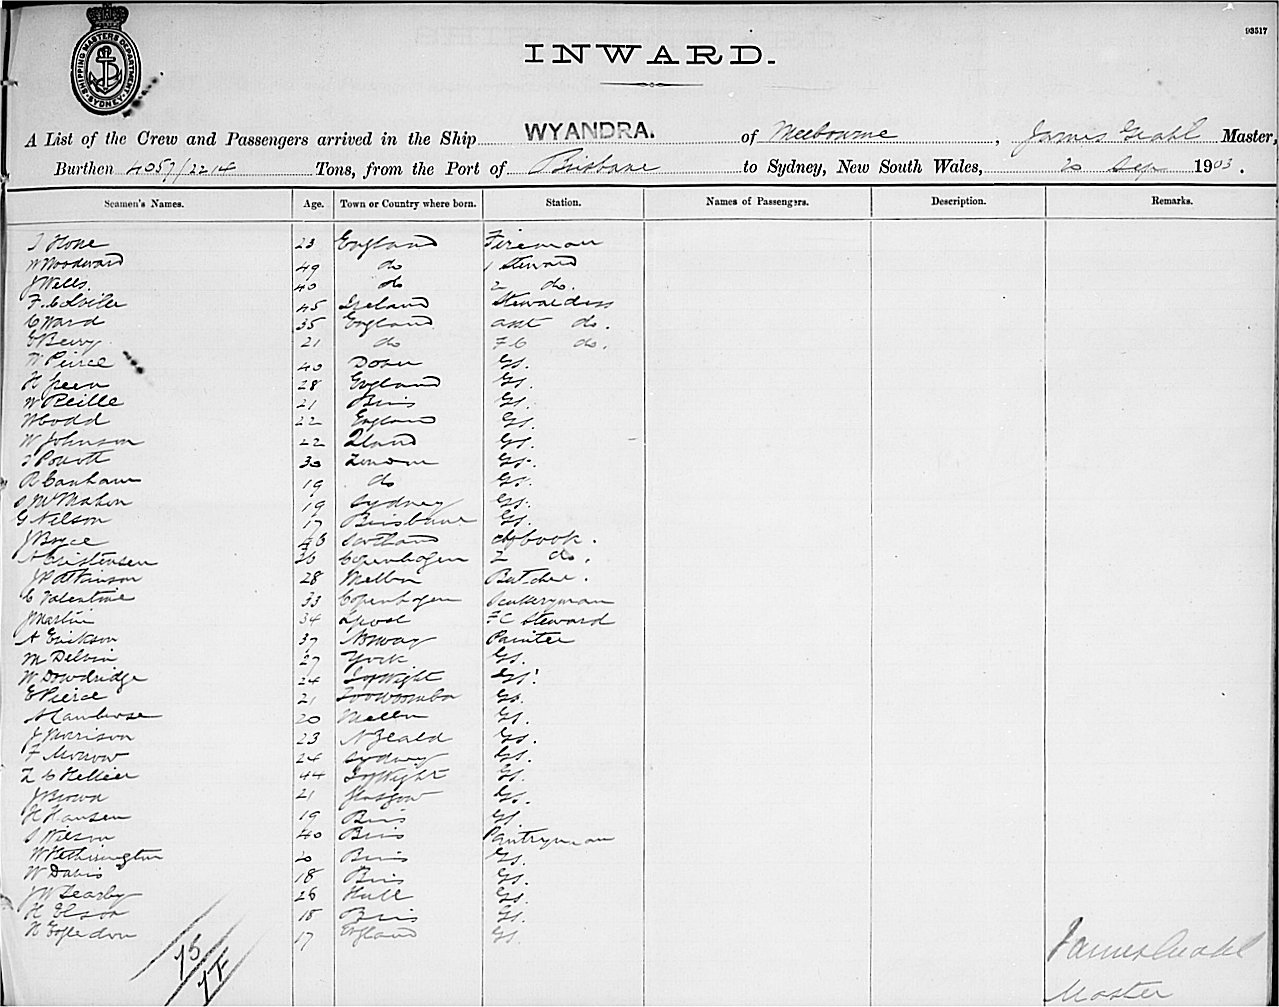 93517
SHIPPING MASTERS DEPARTMENT SYDNEY
INWARD.
A List of the Crew and Passengers arrived in the Ship WYANDRA. of Melbourne, James Master,
Burthen 4057/2214 Tons, from the Port of Brisbane to Sydney, New South Wales, 20 Sep 1903.
Seamen's Names. Age. Town or Country where born. Station. Names of Passengers. Description. Remarks.
23 England Fireman
W Woodward 49 do 1 Steward
J Wells. 40 do 2 do.
45 Ireland Stewardess
C Ward 35 England asst do.
E Berry 21 do F C do.
W Peirce 40 Dover Gs.
H 28 England Gs.
W 21 Bris Gs.
W Codd 22 England Gs.
W Johnson 22 Gs.
30 London Gs.
R Canham 19 do Gs.
McMahon 19 Sydney Gs.
G Nelson 17 Brisbane Gs.
J Bryce 46 Scotland Cook.
A Cristensen 36 Copenhagen 2 do.
J Atkinson 28 Melbn Butcher.
C Valentine 33 Copenhagen Sculleryman
J Martin 34 Lpool FC Steward
A Erikson 37 Norway Painter
M Delvin 27 York Gs.
W Dowdridge 24 I of Wight Gs.
E Pierce 21 Toowoomba Gs.
A Cambrose 20 Melbn Gs.
J Morrison 23 N Zeald Gs.
F Morrow 24 Sydney Gs.
C Hellier 44 I of Wight Gs.
J Brown 21 Glasgow Gs.
H Hansen 19 Bris Gs.
Wilson 40 Bris Pantryman
W Hetherington 20 Bris Gs.
W Davis 18 Bris Gs.
J W Dearby 26 Hull Gs.
H Elson 18 Bris Gs.
H 17 England Gs.
75
1F
James
Master